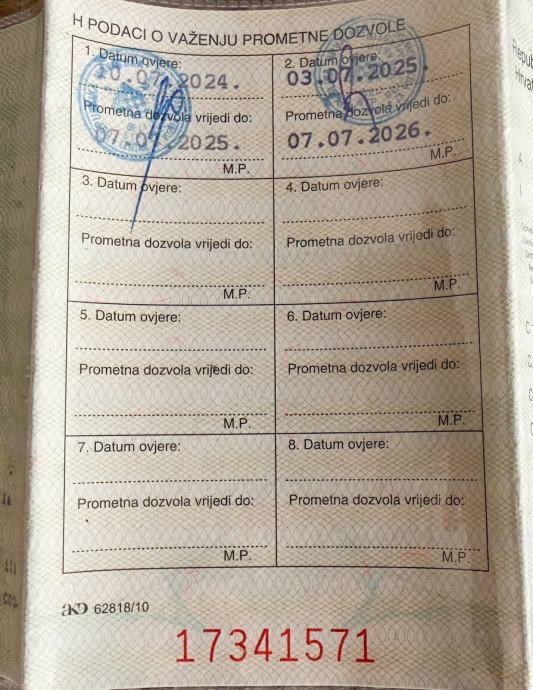 H PODACI O VAŽENJU PROMETNE DOZVOLE
1. Datum ovjere:
10.07.2024.
Prometna dozvola vrijedi do:
07.07.2025.
M.P.
2. Datum ovjere:
03.07.2025.
Prometna dozvola vrijedi do:
07.07.2026.
M.P.
3. Datum ovjere:
Prometna dozvola vrijedi do:
M.P.
4. Datum ovjere:
Prometna dozvola vrijedi do:
M.P.
5. Datum ovjere:
Prometna dozvola vrijedi do:
M.P.
6. Datum ovjere:
Prometna dozvola vrijedi do:
M.P.
7. Datum ovjere:
Prometna dozvola vrijedi do:
M.P.
8. Datum ovjere:
Prometna dozvola vrijedi do:
M.P.
AKD 62818/10
17341571